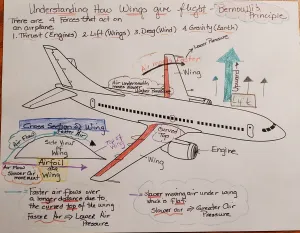 Understanding How Wings give flight - Bernoulli's Principle
There are 4 Forces that act on
an airplane.
1. Thrust (Engines) 2. Lift (Wings) 3. Drag (Wind) 4. Gravity (Earth)
Lower Pressure
Faster
Air Underneath
Wing
Upward
Lift
Cross Section of Wing
Faster Air
Side View of
Wing
Curved Top
Wing
Engine
Airfoil
aka
Wing
Air Flow
Slower Air
movement
= Faster air flows over
a longer distance due to
the curved top of the wing
Faster Air ⇒ Lower Air
Pressure
= Slower moving air under wing
which is flat.
Slower air ⇒ Greater Air
Pressure.